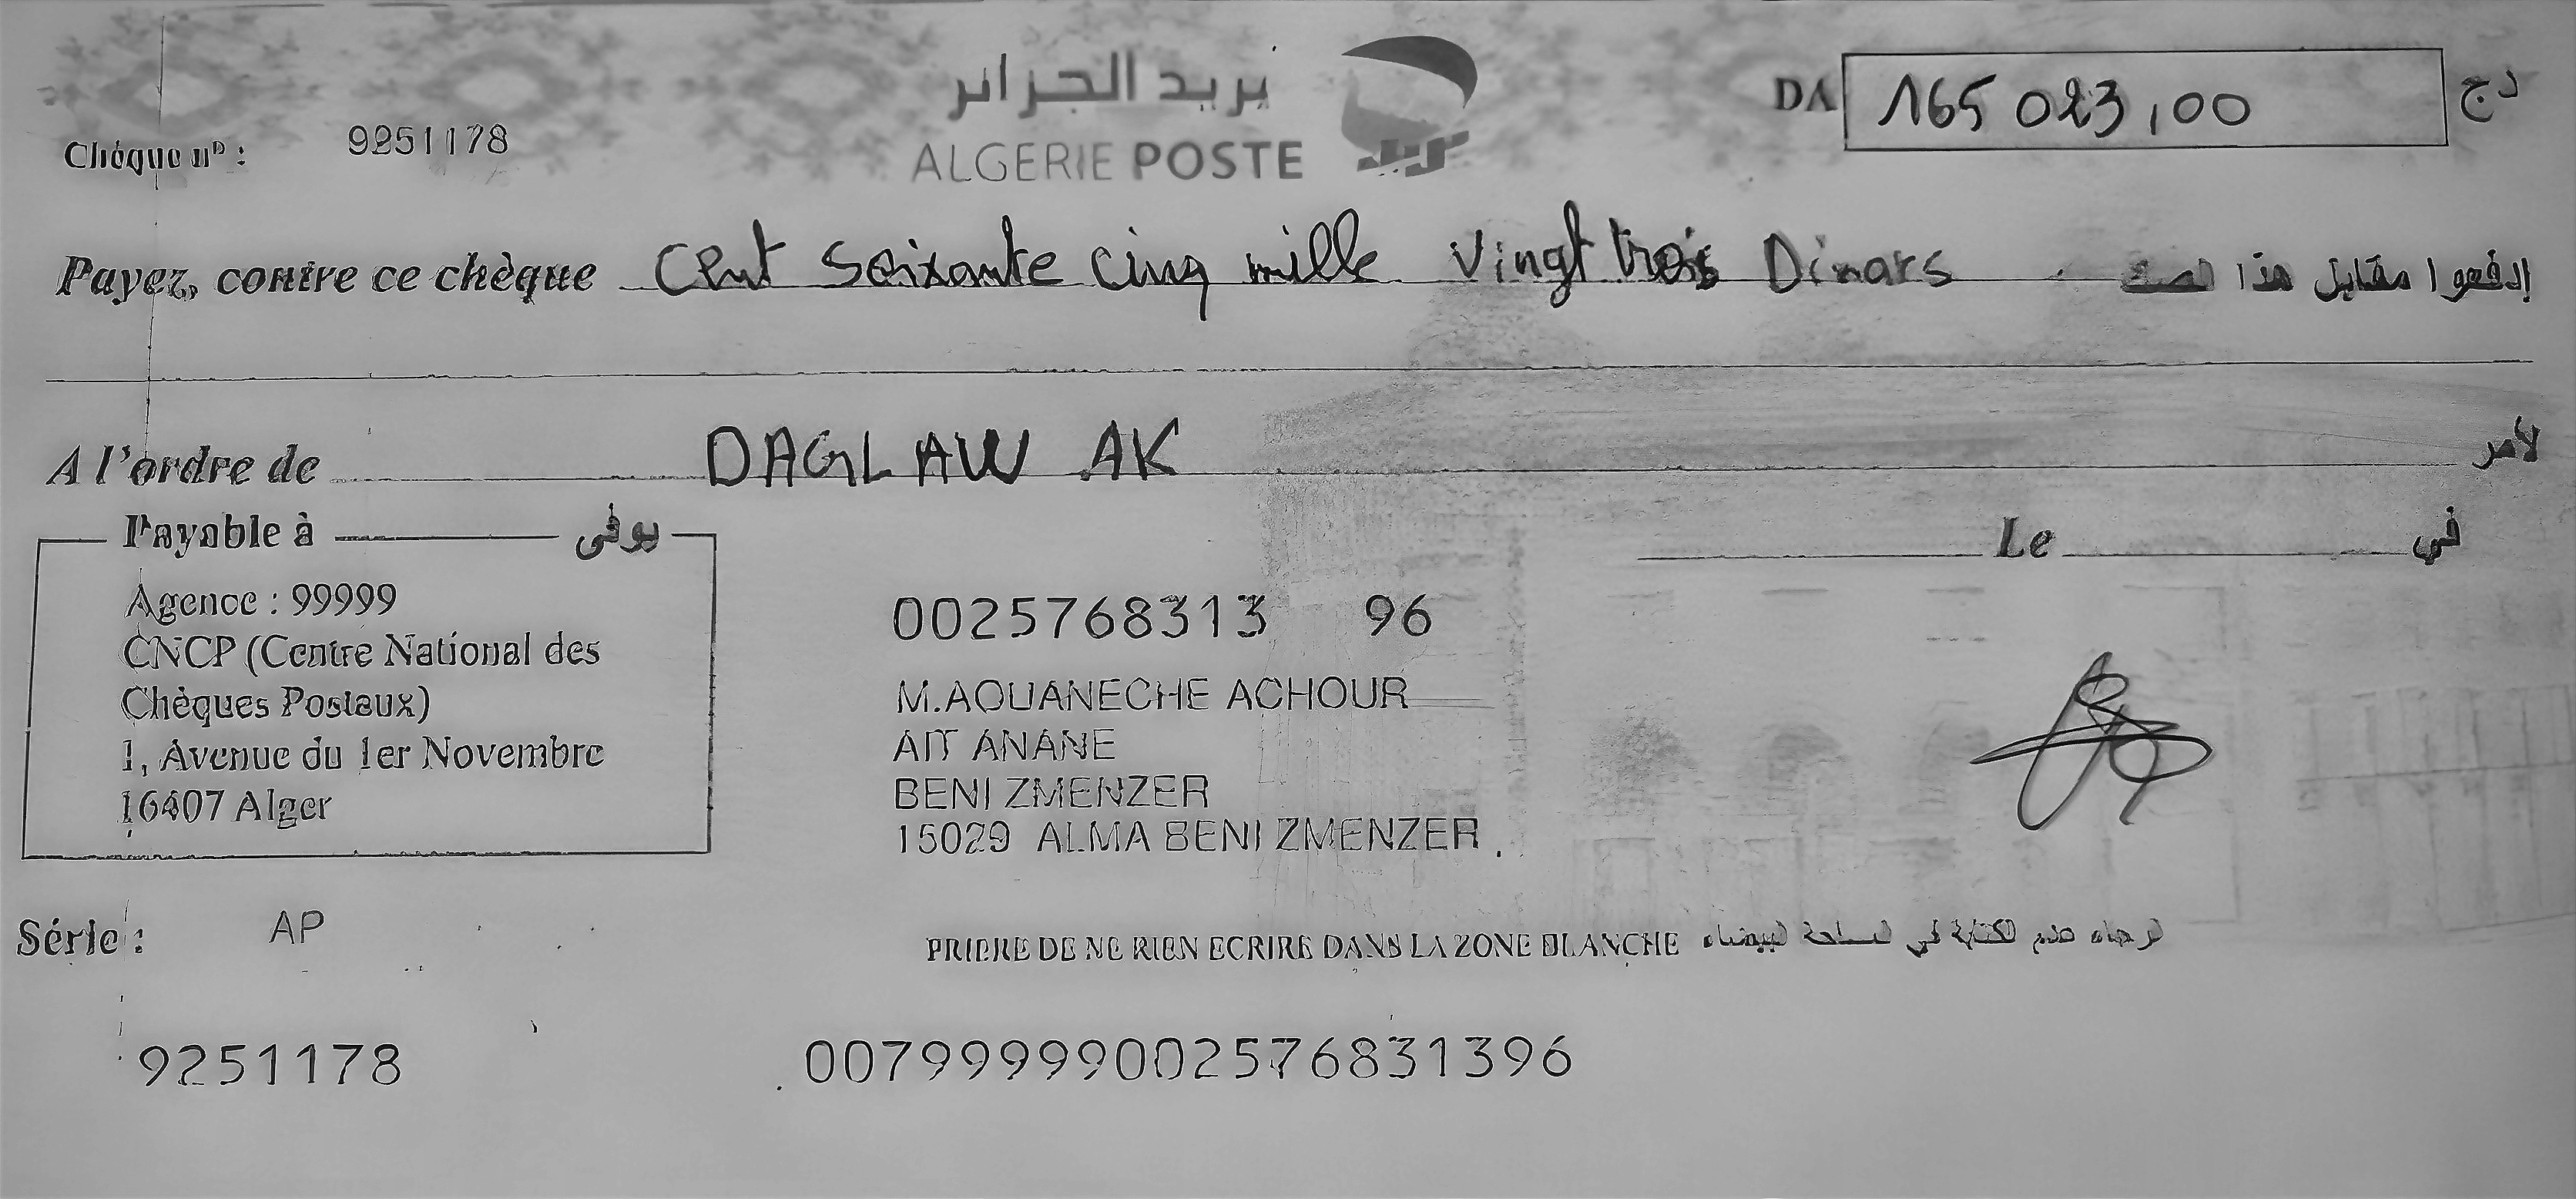 بريد الجزائر
ALGERIE POSTE
Chèque nº : 9251178
DA 165 023,00 دج
Payez, contre ce chèque Cent Soixante cinq mille Vingt trois Dinars إدفعوا مقابل هذا الصك
A l'ordre de DAGLAW AK لأمر
Payable à يوفى
Le في
Agence : 99999
CNCP (Centre National des
Chèques Postaux)
1, Avenue du 1er Novembre
16407 Alger
0025768313 96
M.AOUANECHE ACHOUR
AIT ANANE
BENI ZMENZER
15029 ALMA BENI ZMENZER
Série : AP
PRIERE DE NE RIEN ECRIRE DANS LA ZONE BLANCHE الرجاء عدم الكتابة في المساحة البيضاء
9251178
00799999002576831396